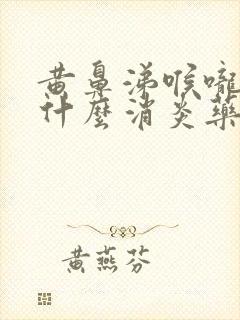 黄鼻涕喉嚨
什麼消炎藥
黃燕芬